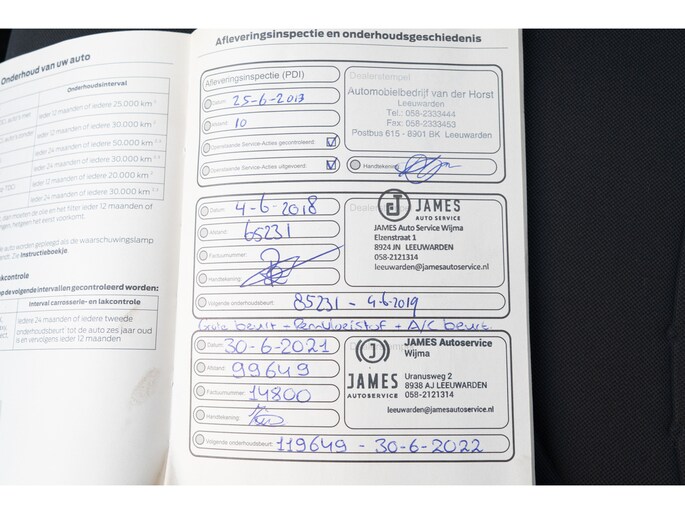 Onderhoud van uw auto
Onderhoudsinterval
Ieder 12 maanden of iedere 25.000 km
Ieder 12 maanden of iedere 30.000 km
Ieder 24 maanden of iedere 50.000 km
Ieder 24 maanden of iedere 30.000 km
Ieder 12 maanden of iedere 20.000 km
Ieder 24 maanden of iedere 30.000 km
moeten de olie en het filter ieder 12 maanden of
hetgeen het eerst voorkomt.
auto worden gepleegd als de waarschuwingslamp
brandt. Zie Instructieboekje
lakcontrole
op de volgende intervallen gecontroleerd worden:
Interval carrosserie- en lakcontrole
Iedere 24 maanden of iedere tweede
onderhoudsbeurt tot de auto zes jaar oud
is en vervolgens ieder 12 maanden
Afleveringsinspectie en onderhoudsgeschiedenis
Afleveringsinspectie (PDI)
Datum: 25-6-2013
Afstand: 10
Openstaande Service-Acties gecontroleerd:
Openstaande Service-Acties uitgevoerd:
Dealerstempel
Automobielbedrijf van der Horst
Leeuwarden
Tel.: 058-2333444
Fax: 058-2333453
Postbus 615 - 8901 BK Leeuwarden
Handtekening:
Datum: 4-6-2018
Afstand: 65231
Factuurnummer:
Handtekening:
JAMES
AUTO SERVICE
JAMES Auto Service Wijma
Elzenstraat 1
8924 JN LEEUWARDEN
058-2121314
leeuwarden@jamesautoservice.nl
Volgende onderhoudsbeurt: 85231 - 4-6-2019
Grote beurt - Remvloeistof + A/C beurt
Datum: 30-6-2021
Afstand: 99649
Factuurnummer: 14800
Handtekening:
JAMES
AUTOSERVICE
JAMES Autoservice
Wijma
Uranusweg 2
8938 AJ LEEUWARDEN
058-2121314
leeuwarden@jamesautoservice.nl
Volgende onderhoudsbeurt: 119649 - 30-6-2022